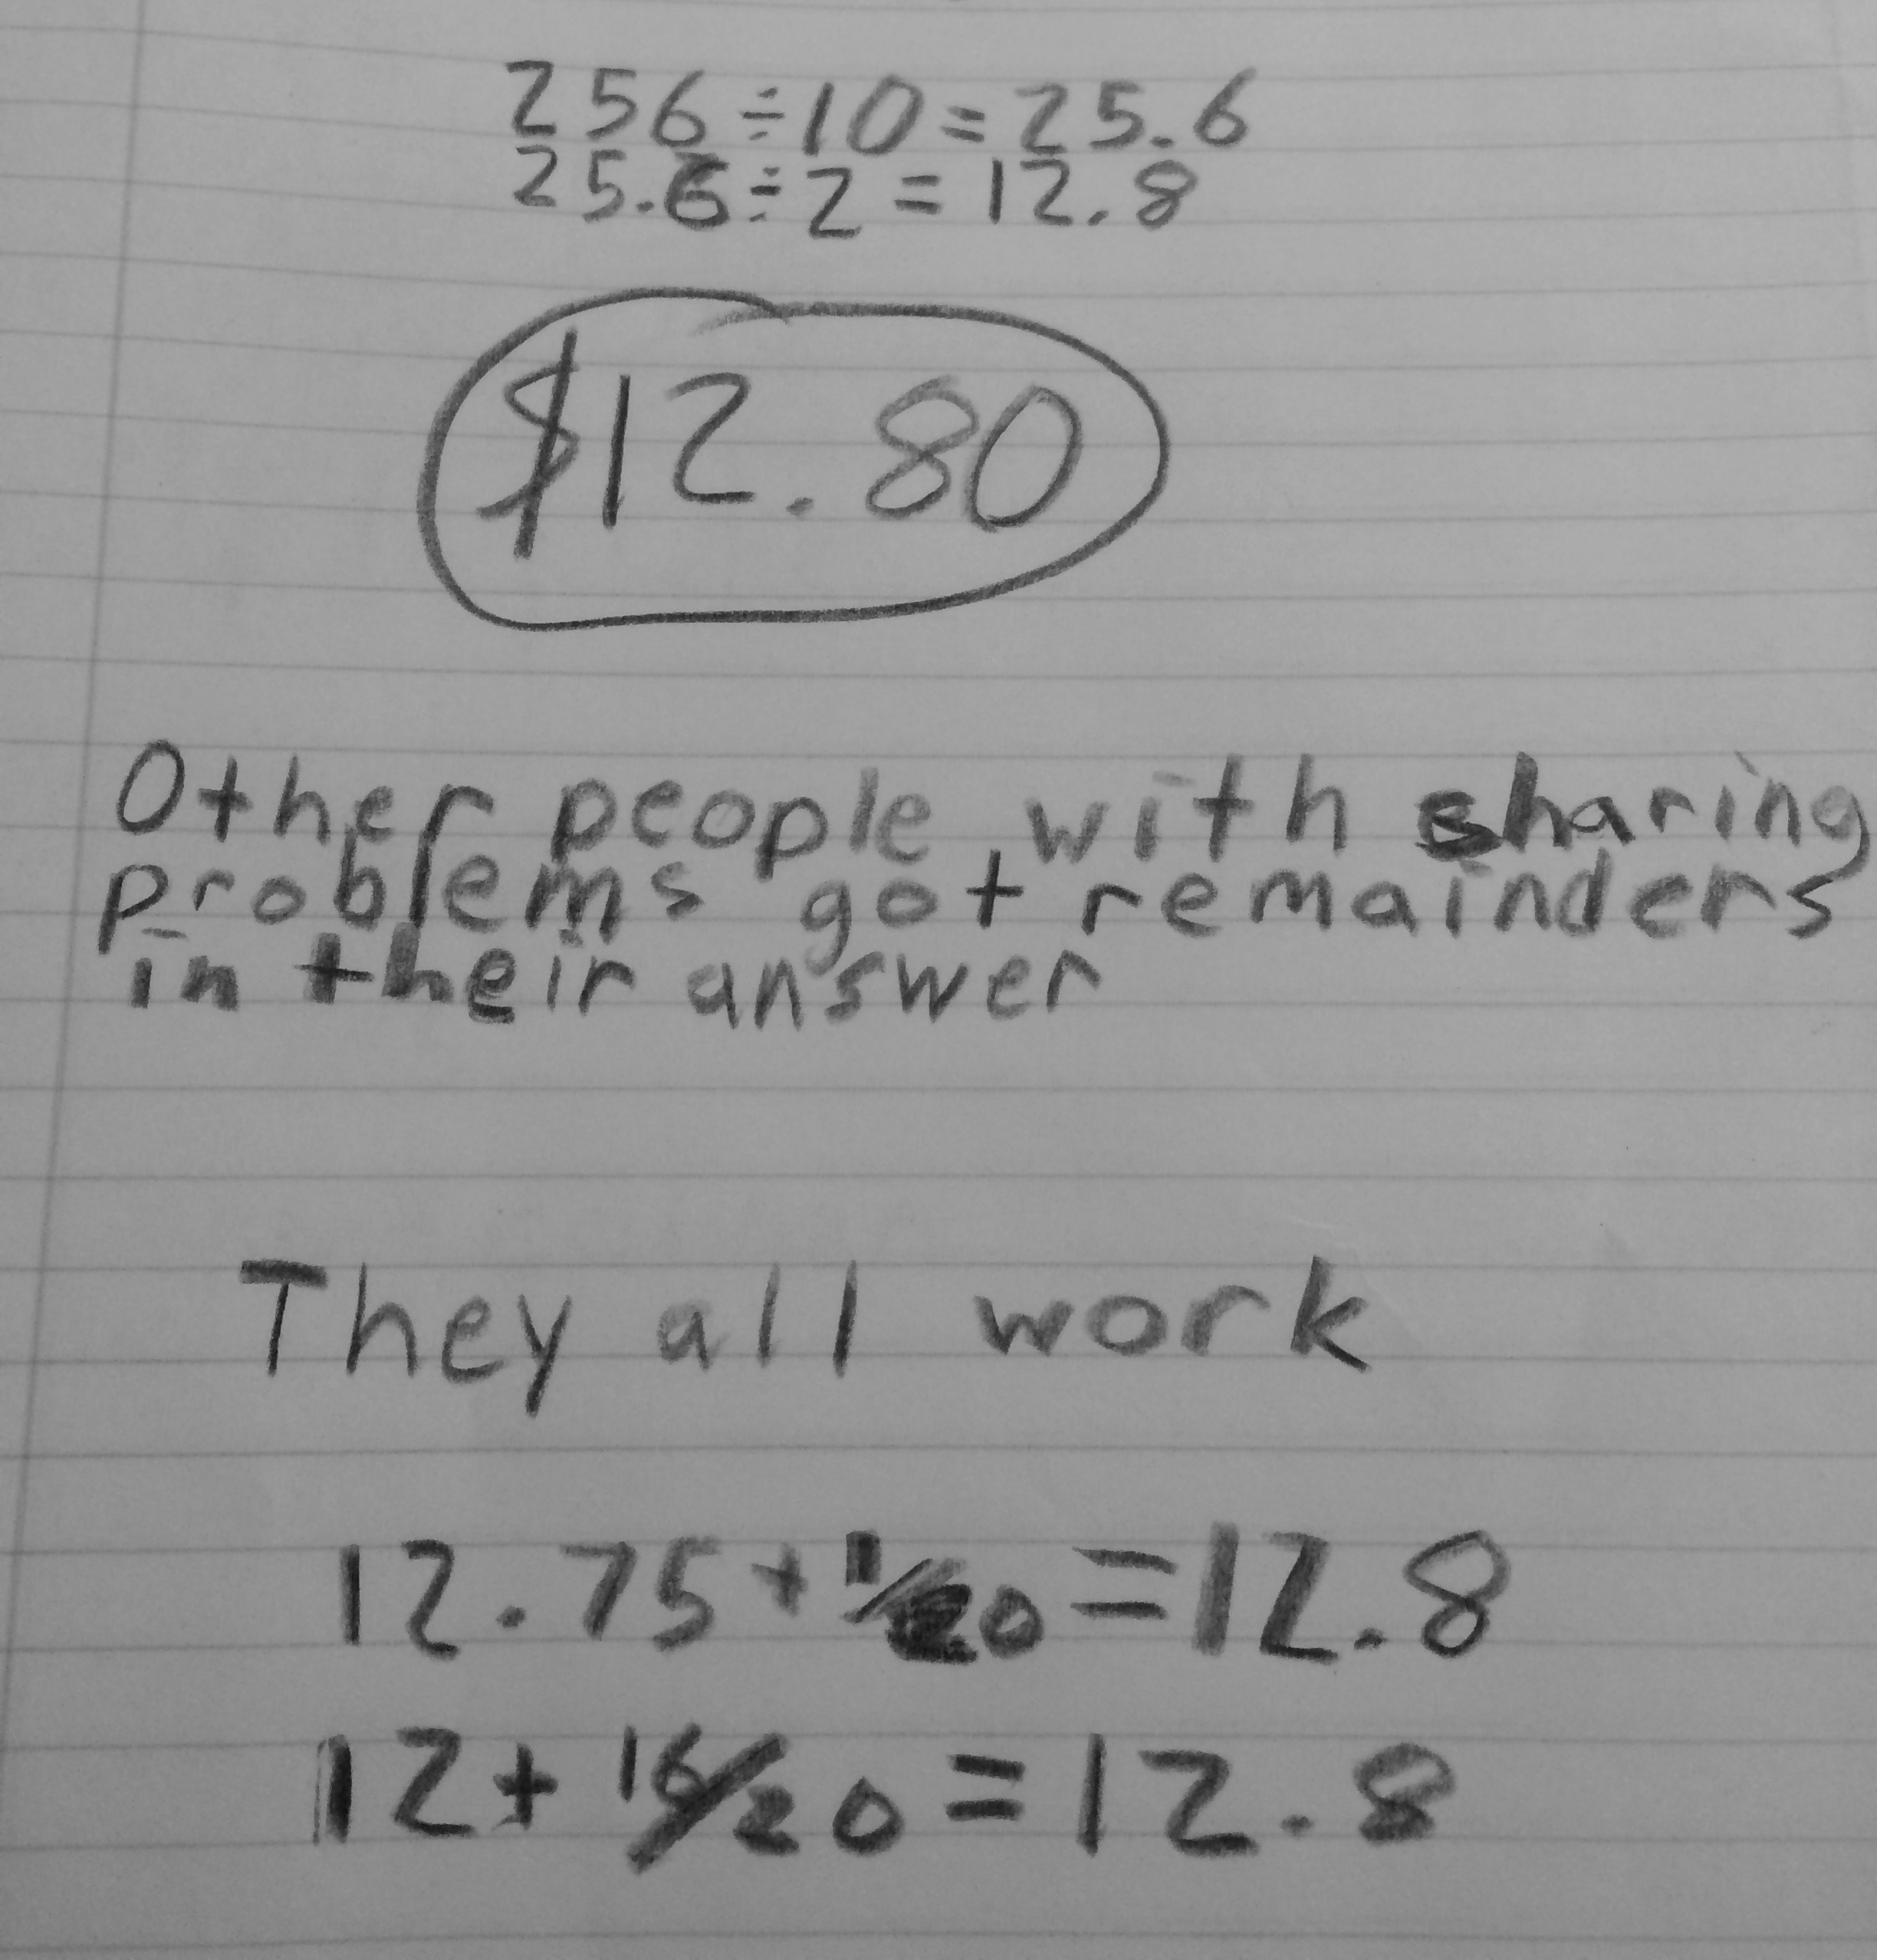 256 ÷ 10 = 25.6
25.6 ÷ 2 = 12.8
$12.80
Other people with sharing
problems got remainders
in their answer
They all work
12.75 + 1/20 = 12.8
12 + 16/20 = 12.8